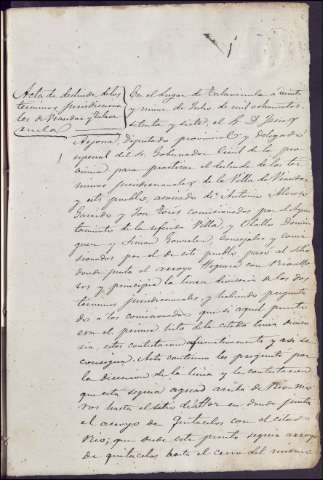 Acta de deslinde de los
terminos jurisdiccionales
de Viandar y Talaveruela
En el lugar de Talaveruela a veinte
y nueve de Julio de mil ochocientos
setenta y siete, el S. D. Jose
Diputado provincial y delegado
especial del Sr. Gobernador Civil de la pro
vincia para practicar el deslinde de los ter
minos jurisdiccionales de la Villa de Viandar
y este pueblo, asociado de Antonio
y Jose comisionados por el Ayun
tamiento de la referida Villa, y
y Simon Gonzalez, Concejales y comi
sionados por el de este pueblo paso al sitio
donde junta el arroyo con
y principia la linea divisoria de los dos
terminos jurisdiccionales y habiendo pregunta
do a los comisionados que si aquel punto
era el primer hito de la citada linea diviso
ria, estos contestaron afirmativamente y asi se
consigna. Acto continuo les pregunto por
la direccion de la linea y le contestaron
que esta seguia aguas arriba de
hasta el sitio en donde junta
el arroyo de con el citado
Rio; que desde este punto seguia arroyo
de hasta el cerro del mismo